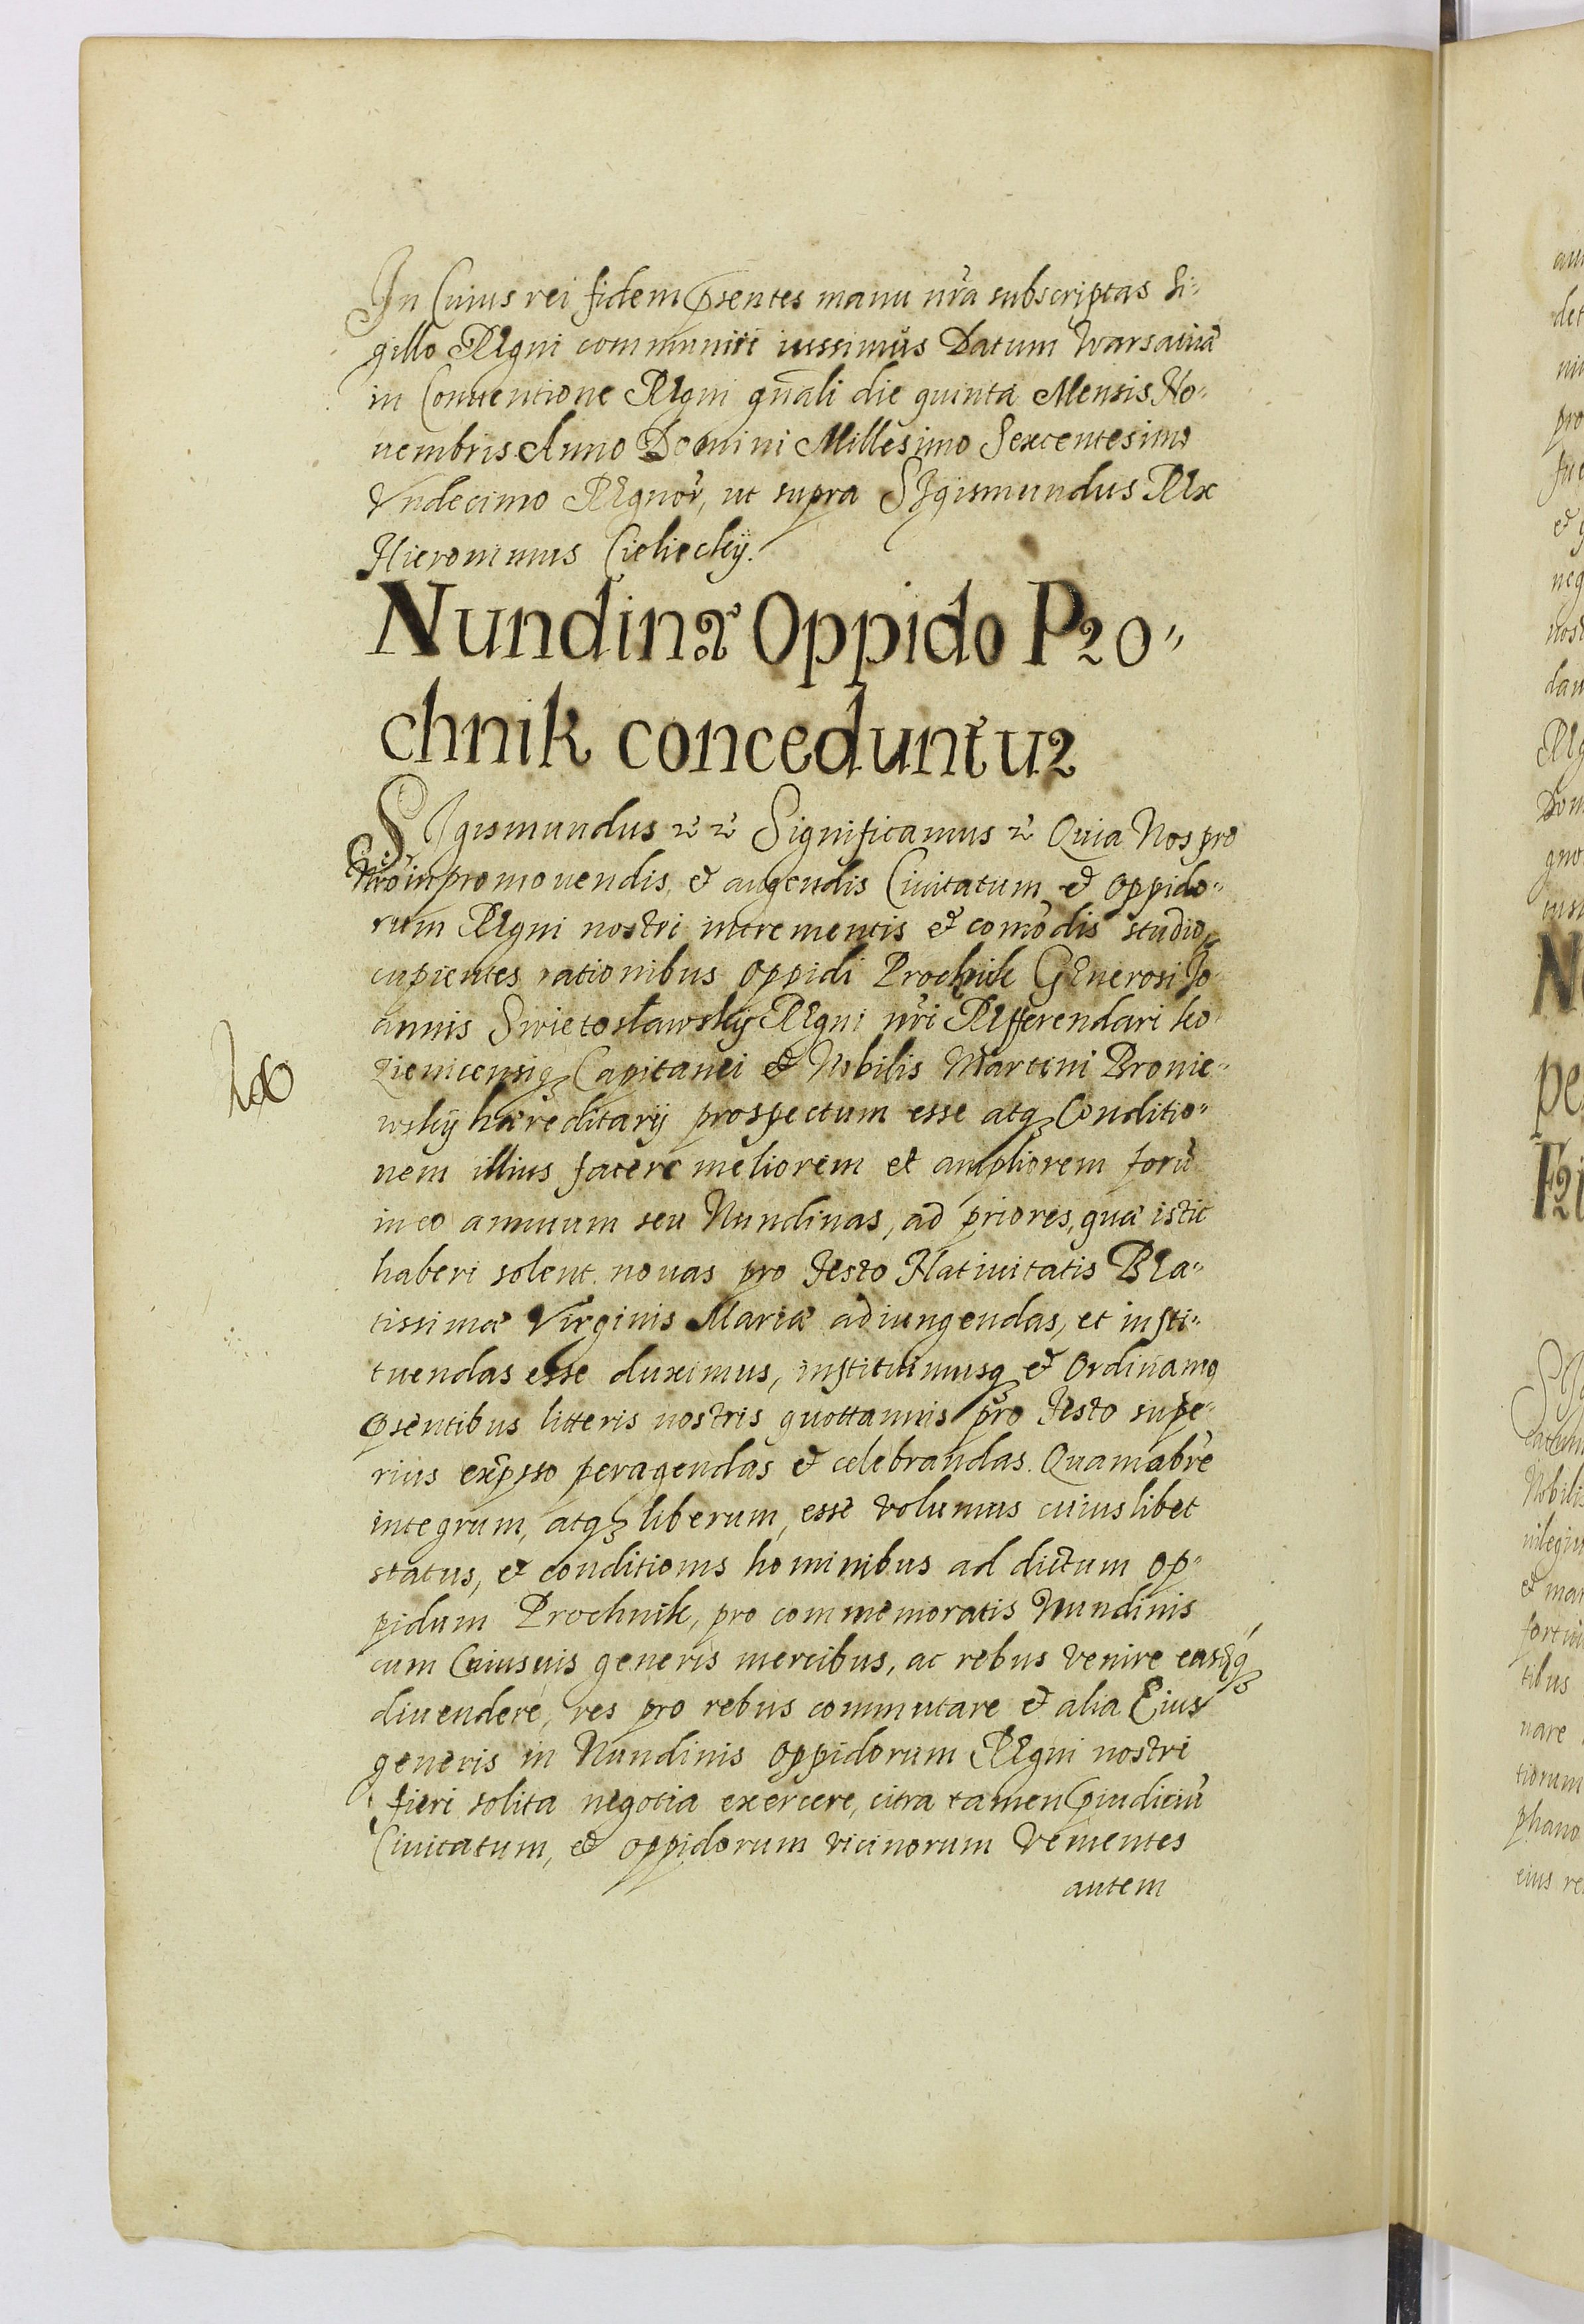 In Cuius rei fidem p̃sentes manu nr̃a subscriptas Si-
gillo REgni communiri iussimus Datum Warsauiæ
in Conuentione REgni gñali die quinta Mensis No-
uembris Anno Domini Millesimo Sexcentesimo
Vndecimo REgnor̃, ut supra SIgismundus REx
Hieronimus Cieliecky.
Nundinæ Oppido Pro-
chnik conceduntur
SIgismundus etc̃ etc̃ Significamus etc̃ Quia Nos pro
nr̃o in promouendis, et augendis Ciuitatum et oppido-
rum REgni nostri incrementis et com̃odis studio,
cupientes rationibus oppidi Prochnik GEnerosi Jo-
annis Swietosławsky REgni nr̃i REfferendari ko-
zienicensisq3 Capitanei et Nobilis Martini Bronie-
wsky hæreditarij prospectum esse atq3 Conditio-
nem illius facere meliorem et ampliorem forũ
in eo annuum seu Nundinas, ad priores, quæ istic
haberi solent. nouas pro festo Natiuitatis BEa-
tissimæ Virginis Mariæ adiungendas, et insti-
tuendas esse duximus, instituimusq3 et Ordinamq
p̃sentibus litteris nostris quottannis pro festo supe-
rius exp̃sso peragendas et celebrandas. Quamabrẽ
integrum, atq3 liberum, esse volumus cuiuslibet
status, et conditionis hominibus ad dictum op-
pidum Prochnik, pro commemoratis Nundinis
cum Cuiusuis generis mercibus, ac rebus venire easq3
diuendere, res pro rebus commutare et alia Eius
generis in Nundinis oppidorum REgni nostri
fieri solita negotia exercere, citra tamen p̃iudiciũ
Ciuitatum, et oppidorum vicinorum Venientes
autem